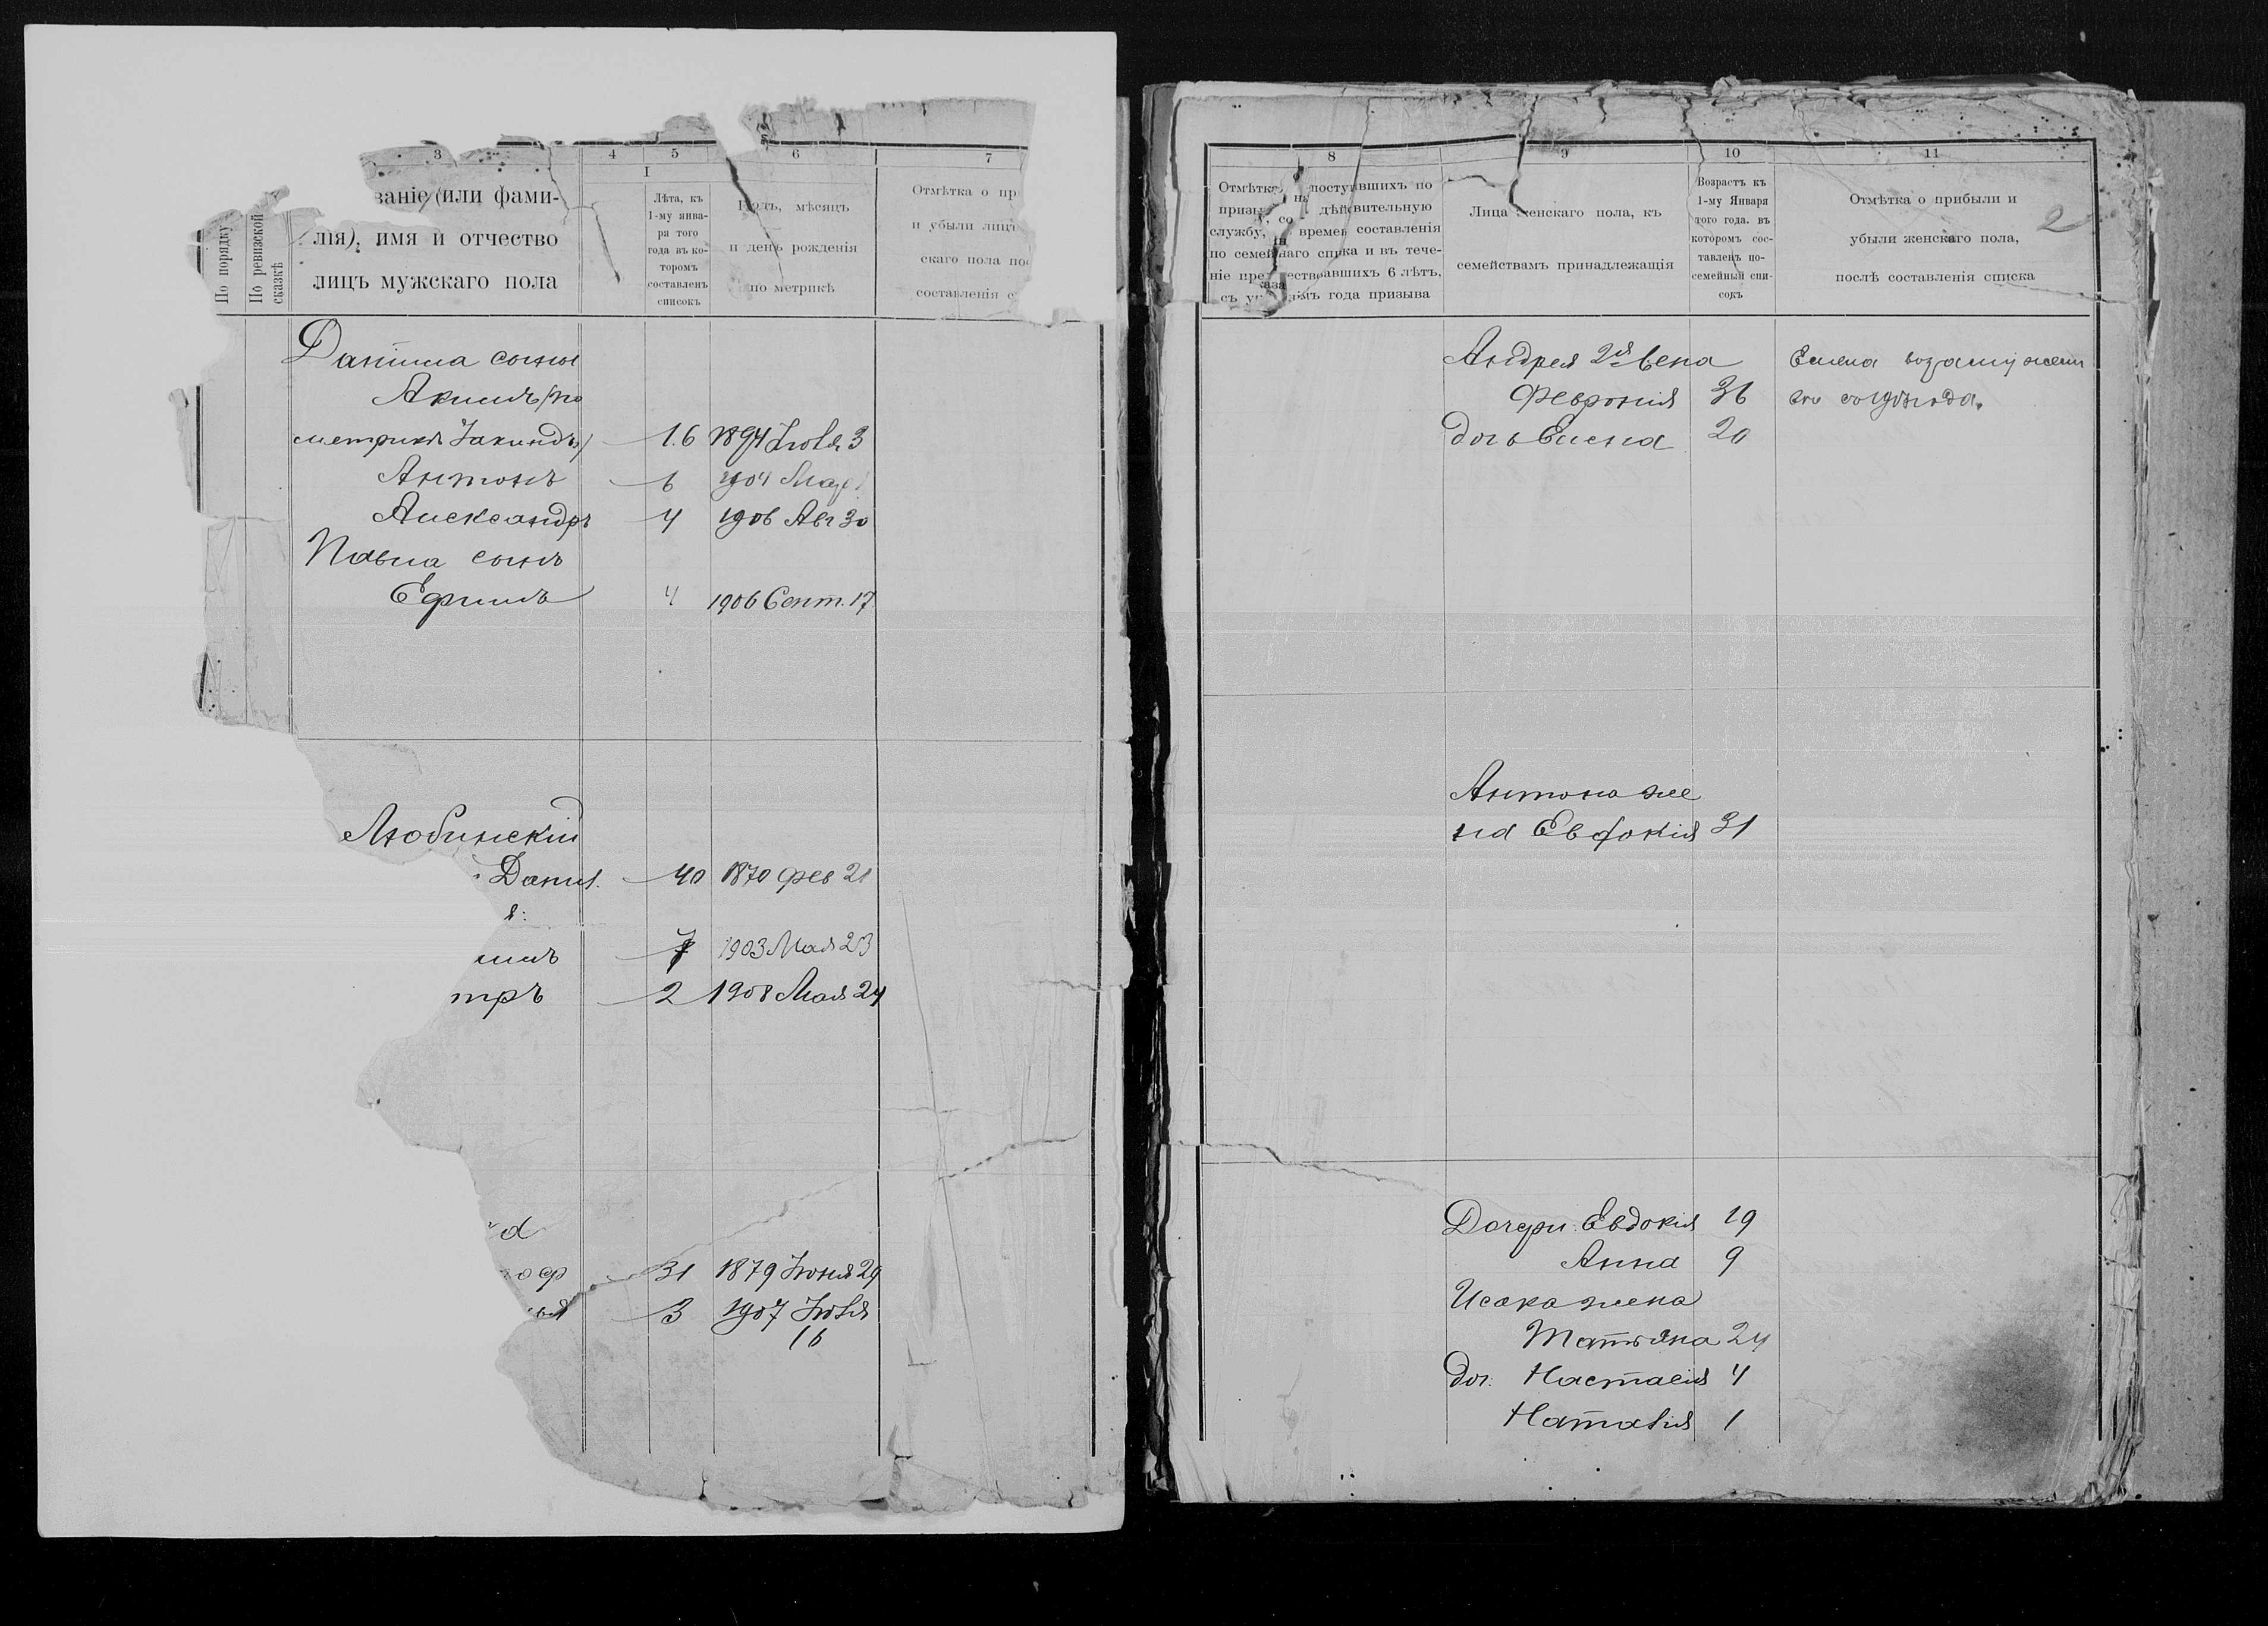 3 4 5 6 7
I
званіе (или фами-
лія), имя и отчество
лицъ мужскаго пола
По порядку
По ревизской
сказкѣ
Лѣта, къ
1-му янва-
ря того
года въ ко-
торомъ
составленъ
списокъ
Годъ, мѣсяцъ
и день рожденія
по метрикѣ
Отмѣтка о пр
и убыли лицъ
скаго пола пос
составленія с
Данила сыны
Акимъ (по
метрикѣ Іакинфъ) 16 1894 Іюля 3
Антонъ 6 1904 Мар
Александръ 4 1906 Авг 30
Павла сынъ
Ефимъ 4 1906 Сент. 17
Любинскій
Данил. 40 1870 Фев 21
я:
имъ 7 1903 Мая 23
тръ 2 1908 Мая 24
а
оф 31 1879 Іюня 29
3 1907 Іюля
16
8 9 10 11
Отмѣтка о поступившихъ по
призыву на дѣйствительную
службу, со времен составленія
по семейнаго списка и въ тече-
ніе предшествовавшихъ 6 лѣтъ,
съ указаніемъ года призыва
Лица женскаго пола, къ
семействамъ принадлежащія
Возрастъ къ
1-му Января
того года. въ
которомъ сос-
тавленъ по-
семейный спи-
сокъ
Отмѣтка о прибыли и
убыли женскаго пола,
послѣ составленія списка
2
Андрея 2я жена Елена
Февронія 36
дочь Елена 20
Антона же
на Евдокія 31
Дочери: Евдокія 19
Анна 9
Исака жена
Татьяна 24
доч. Настасія 4
Наталія 1